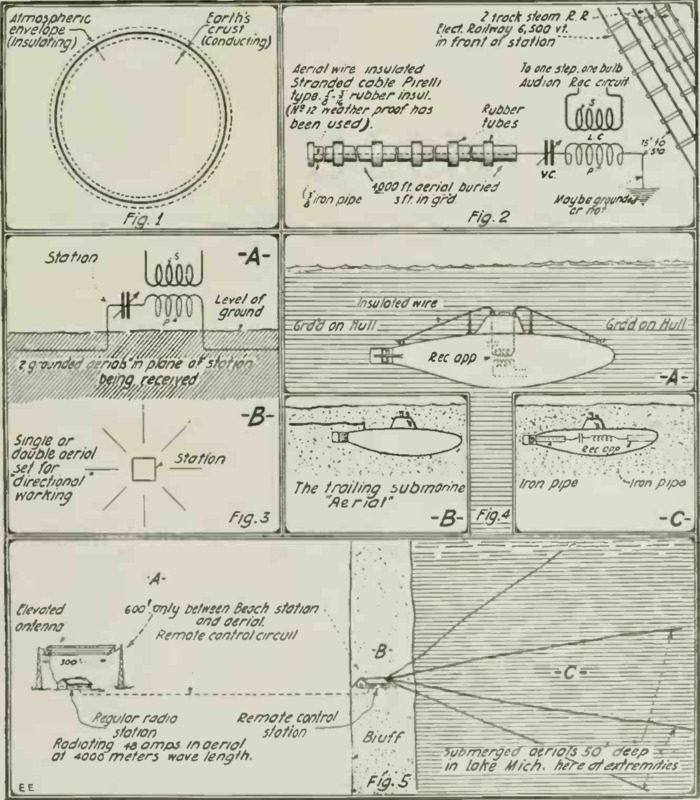 Atmospheric
envelope
(Insulating)
Earth's
crust
(Conducting)
Fig. 1
2 track steam R.R
Elect. Railway 6,500 vt.
in front of station
Aerial wire insulated
Stranded cable Pirelli
rubber insul.
(No 12 weather proof has
been used).
Rubber
tubes
To one step. one bulb
Audion Rec circuit
S
L.C
P
V.C.
15' to
sta
iron pipe
4000 ft. aerial buried
3 ft. in grd
May be grounded
or not
Fig. 2
Station
-A-
S
P
Level of
ground
2 grounded aerials in plane of station
being received
-B-
Single or
double aerial
set for
"directional"
working
Station
Fig. 3
Insulated wire
Grd'd on Hull
Grd'd on Hull
Rec app
-A-
The trailing submarine
"Aerial"
-B-
Fig. 4
Rec app
Iron pipe
Iron pipe
-C-
-A-
Elevated
antenna
600' only between Beach station
and aerial.
Remote control circuit
300'
Regular radio
station
Remote control
station
Radiating 48 amps. in aerial
at 4000 meters wave length.
-B-
Bluff
-C-
Submerged aerials 50' deep
in Lake Mich. here at extremities
Fig. 5
EE